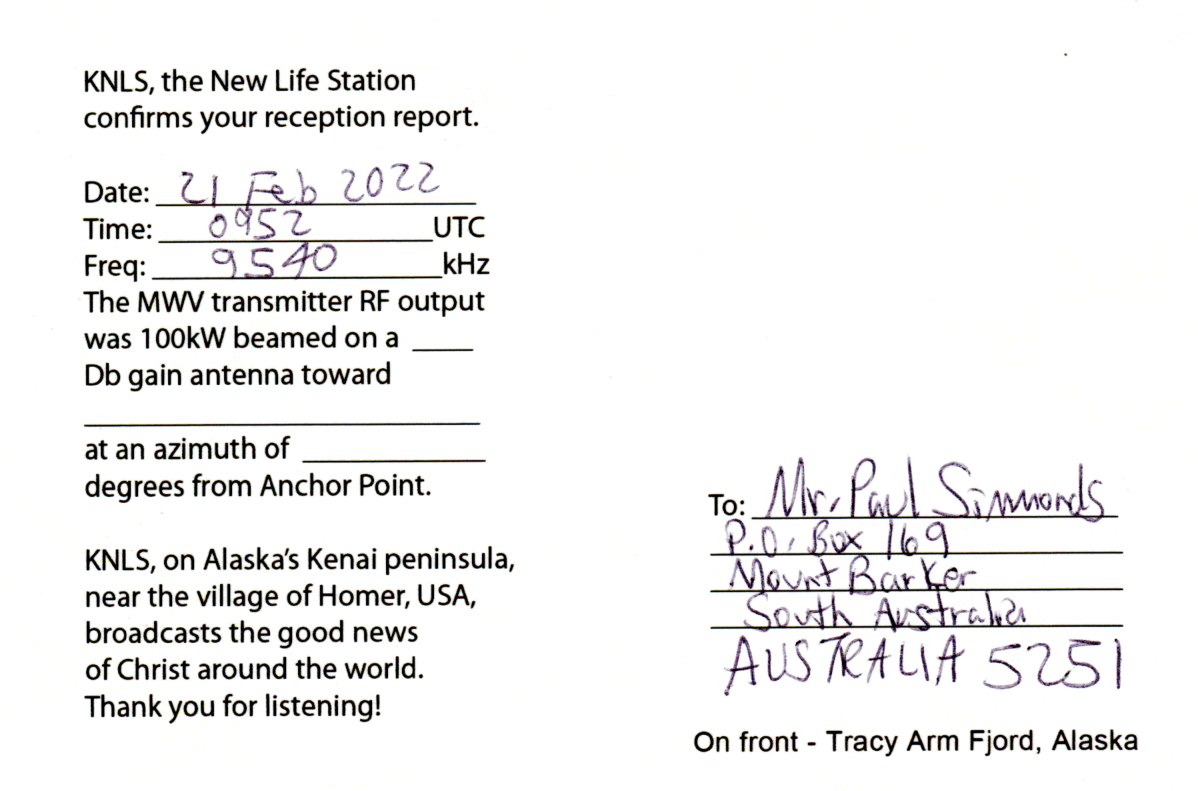 KNLS, the New Life Station
confirms your reception report.
Date: 21 Feb 2022
Time: 0952 UTC
Freq: 9540 kHz
The MWV transmitter RF output
was 100kW beamed on a ____
Db gain antenna toward
____
at an azimuth of ____
degrees from Anchor Point.
KNLS, on Alaska's Kenai peninsula,
near the village of Homer, USA,
broadcasts the good news
of Christ around the world.
Thank you for listening!
To: Mr. Paul Simmonds
P.O. Box 169
Mount Barker
South Australia
AUSTRALIA 5251
On front - Tracy Arm Fjord, Alaska